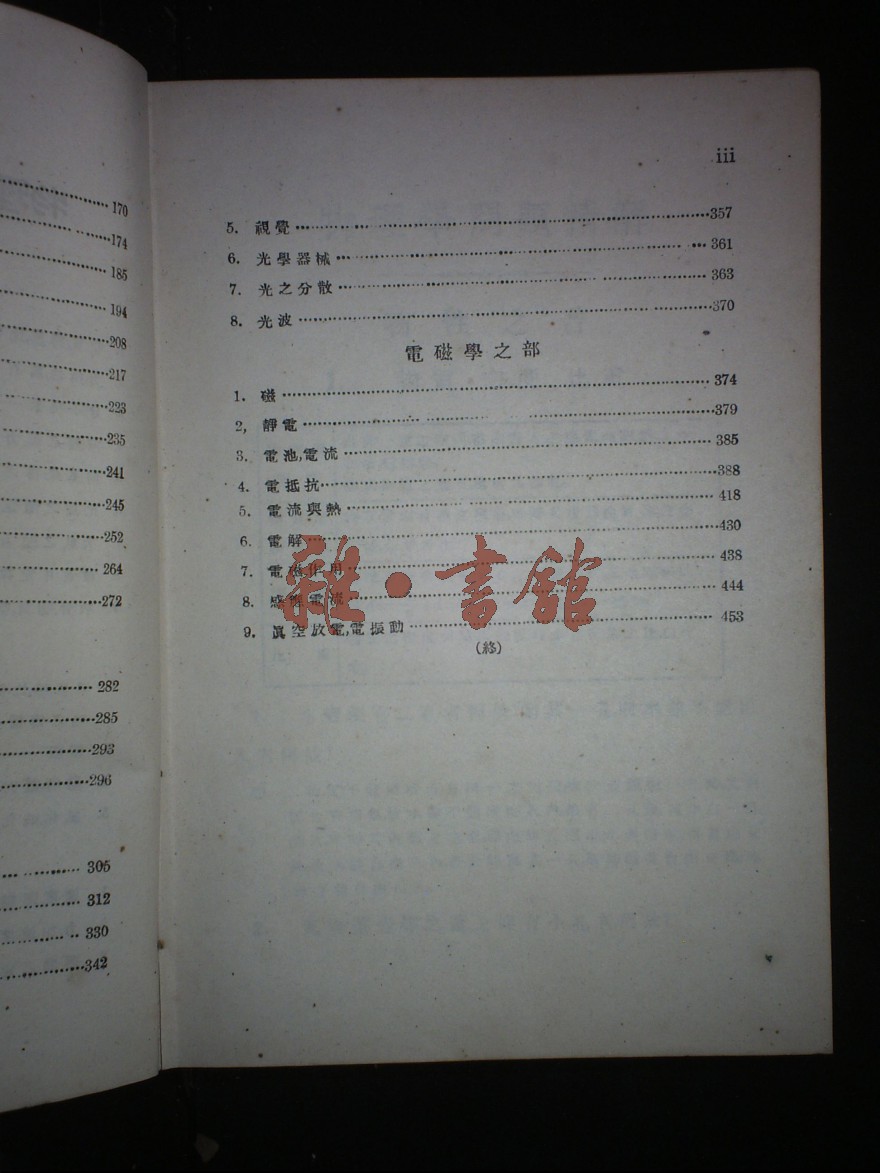 170
174
185
194
208
217
223
235
241
245
252
264
272
282
285
293
296
305
312
330
342
iii
5. 視覺 357
6. 光學器械 361
7. 光之分散 363
8. 光波 370
電磁學之部
1. 磁 374
2, 靜電 379
3. 電池,電流 385
4. 電抵抗 388
5. 電流與熱 418
6. 電解 430
7. 電磁作用 438
8. 感應電流 444
9. 眞空放電,電振動 453
(終)
雜·書館